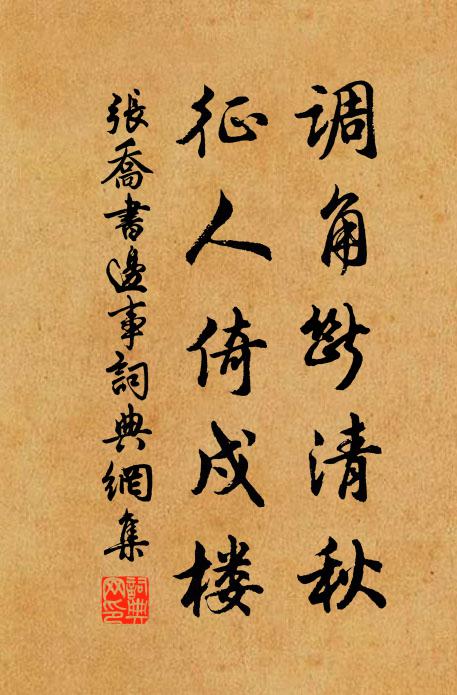 调角断清秋
征人倚戍楼
張喬書邊事詞典網集
詞典
网印